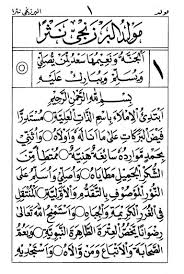 مولد ١ البرزنجي نثرا
مَوْلِدُ الْبَرْزَنْجِيْ نَثْرًا
اَلْجَنَّةُ وَنَعِيْمُهَا سَعْدٌ لِمَنْ يُصَلِّيْ
وَيُسَلِّمُ وَيُبَارِكُ عَلَيْهِ
١
بِسْمِ اللهِ الرَّحْمٰنِ الرَّحِيْمِ
أَبْتَدِئُ الْإِمْلَاءَ بِاسْمِ الذَّاتِ الْعَلِيَّةِ ۞ مُسْتَدِرًّا
فَيْضَ الْبَرَكَاتِ عَلَى مَا أَنَالَهُ وَأَوْلَاهُ ۞ وَأُثَنِّيْ
بِحَمْدٍ مَوَارِدُهُ سَائِغَةٌ هَنِيَّةٌ ۞ مُمْتَطِيًا مِنَ
الشُّكْرِ الْجَمِيْلِ مَطَايَاهُ ۞ وَأُصَلِّيْ وَأُسَلِّمُ عَلَى
النُّوْرِ الْمَوْصُوْفِ بِالتَّقَدُّمِ وَالْأَوَّلِيَّةِ ۞ الْمُنْتَقِلِ
فِي الْغُرَرِ الْكَرِيْمَةِ وَالْجِبَاهِ ۞ وَأَسْتَمْنِحُ اللهَ تَعَالَى
رِضْوَانًا يَخُصُّ الْعِتْرَةَ الطَّاهِرَةَ النَّبَوِيَّةَ ۞ وَيَعُمُّ
الصَّحَابَةَ وَالْأَتْبَاعَ وَمَنْ وَالَاهُ ۞ وَأَسْتَجْدِيْهِ